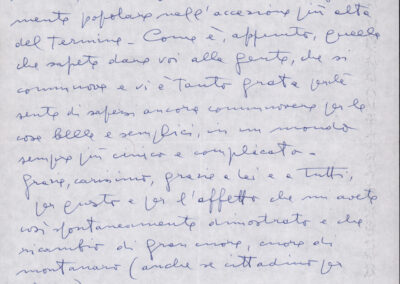 mente popolare nell'accezione più alta
del termine - Come è, appunto, quella
che sapete dare voi alla gente, che si
commuove e vi è tanto grata perché
sente di sapersi ancora commuovere per le
cose belle e semplici, in un mondo
sempre più cinico e complicato -
Grazie, carissimo, grazie a lei e a tutti,
per questo e per l'affetto che mi avete
così spontaneamente dimostrato e che
ricambio di gran cuore, cuore di
montanaro (anche se cittadino per